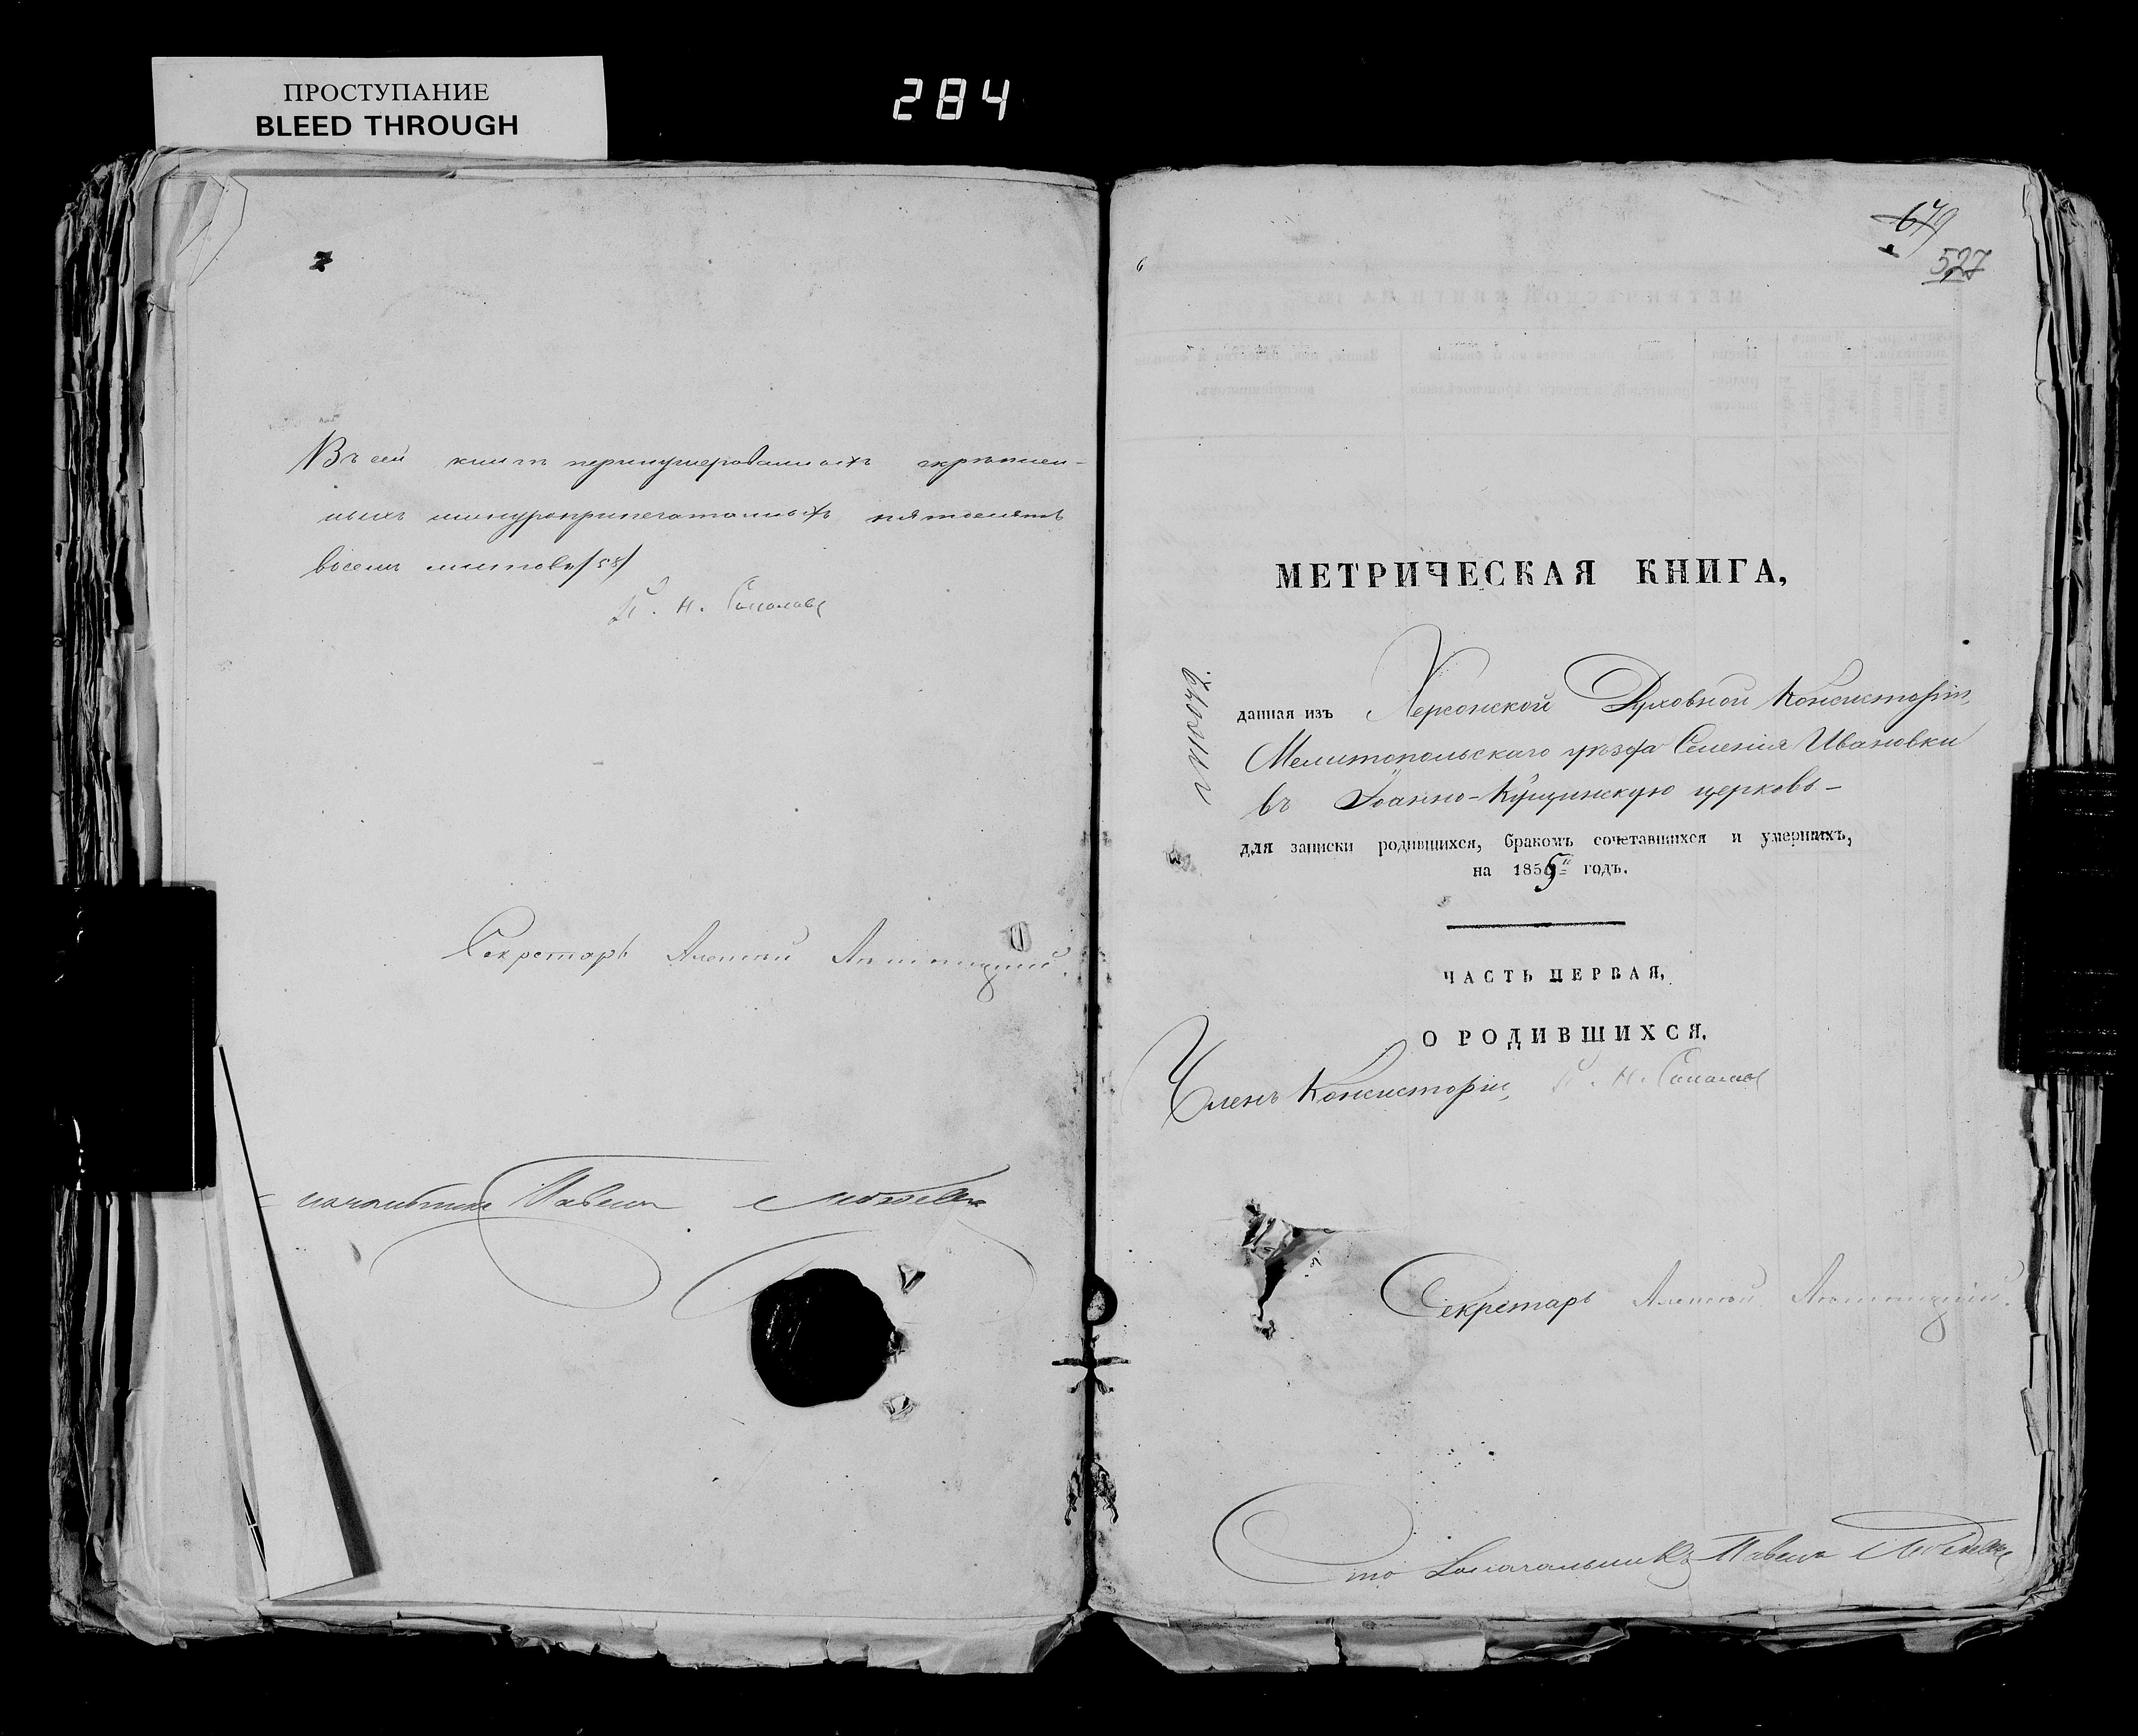 ПРОСТУПАНИЕ
BLEED THROUGH
284
Въ сей книгѣ перенумерованныхъ скрѣплен-
ныхъ шнуроприпечатанныхъ пятдесятъ
восемь листовъ /58/
Секретарь Алексѣй
Павелъ
679
527
6
МЕТРИЧЕСКАЯ КНИГА,
данная изъ Херсонской Духовной Консисторіи,
Мелитопольскаго уѣзда Селенія Ивановки
въ Іоанно-Кущинскую церковь –
для записки родившихся, бракомъ сочетавшихся и умершихъ,
на 1855 годъ.
ЧАСТЬ ПЕРВАЯ,
О РОДИВШИХСЯ.
Членъ Консисторіи,
Секретарь Алексѣй
Столоначальникъ Павелъ